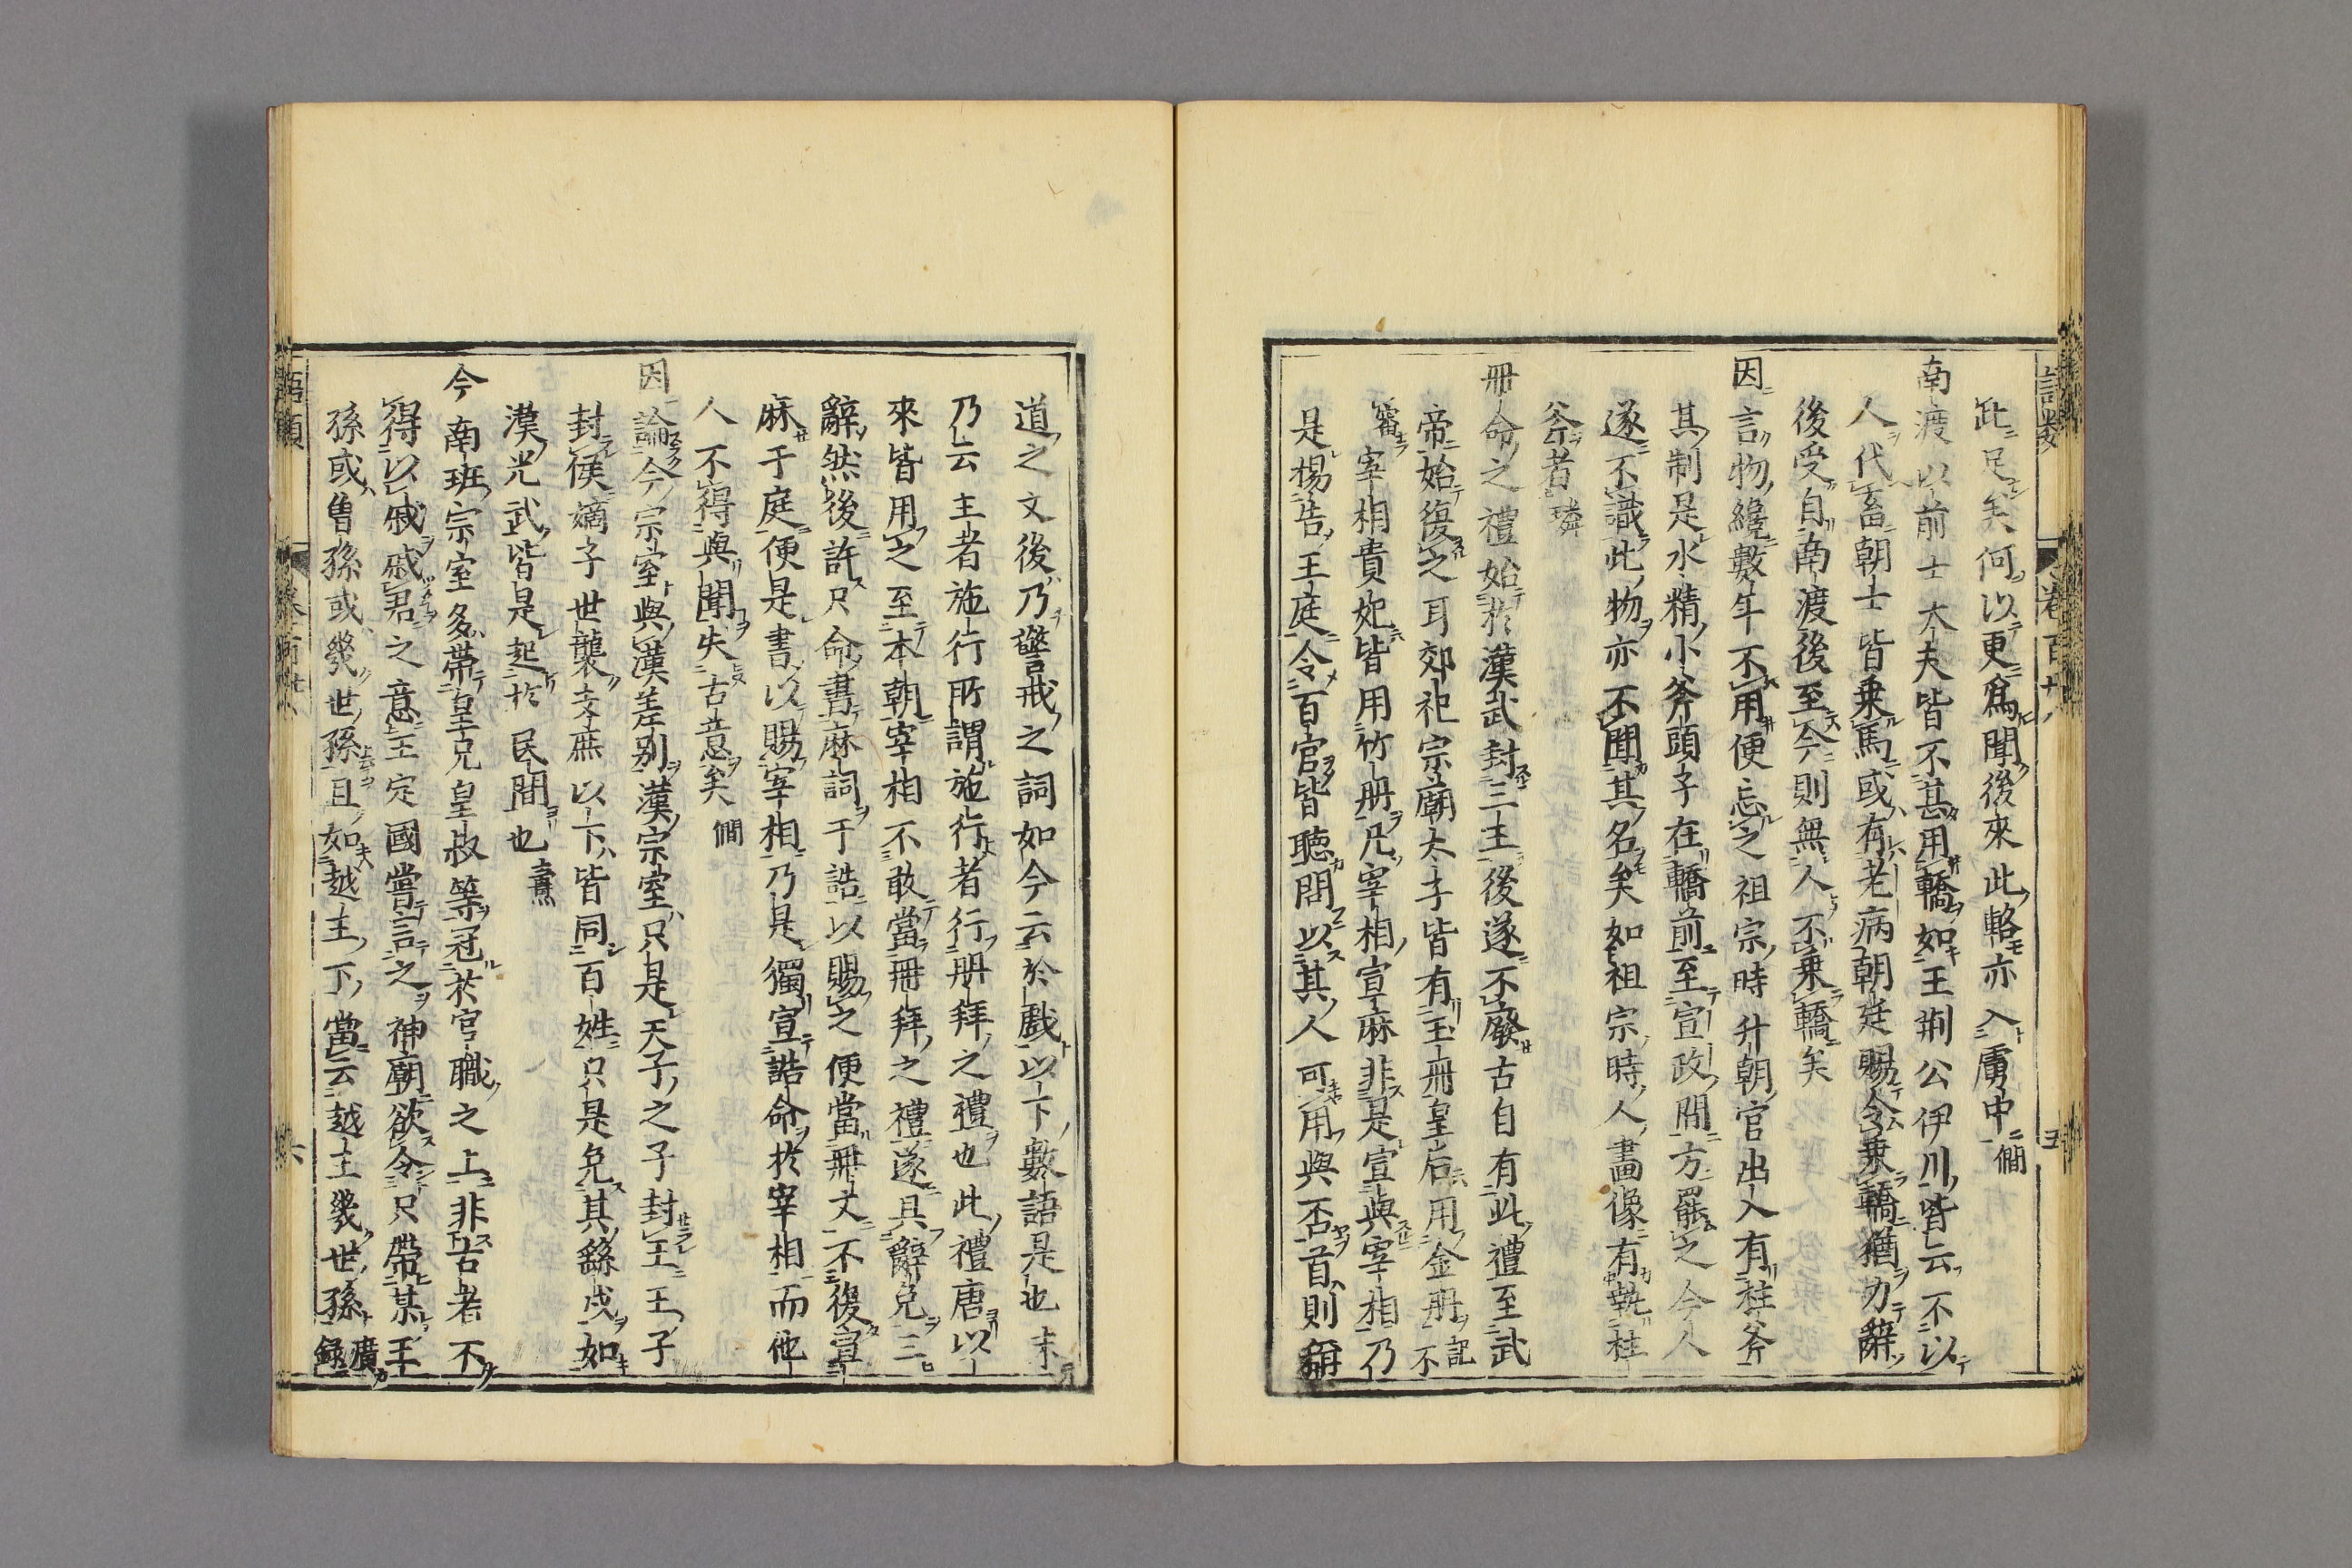 此足矣何以更爲聞後來此輅亦入虜中僩
南渡以前士大夫皆不甚用轎如王荆公伊川皆云不以
人代畜朝士皆乗馬或有老病朝廷賜令乗轎猶力辭
後受自南渡後至今則無人不乗轎矣
因言物纔數年不用便忘之祖宗時升朝官出入有柱斧
其制是水精小斧頭子在轎前至宣政間方罷之今人
遂不識此物亦不聞其名矣如祖宗時人畫像有執柱
斧者璘
冊命之禮始於漢武封三王後遂不廢古自有此禮至武
帝始復之耳郊祀宗廟太子皆有玉冊皇后用金冊記不
審宰相貴妃皆用竹册凡宰相宣麻非是宣與宰相乃
是揚告王庭令百官皆聽聞以其人可用與否首則稱
道之文後乃警戒之詞如今云於戲以下數語是也末
乃云主者施行所謂施行者行册拜之禮也此禮唐以
來皆用之至本朝宰相不敢當冊拜之禮遂具辭免三
辭然後許只命書麻詞于誥以賜之便當冊文不復宣
麻于庭便是書以賜宰相乃是獨宣誥命於宰相而他
人不得與聞失古意矣僩
因論今宗室與漢差别漢宗室只是天子之子封王王子
封侯嫡子世襲支庶以下皆同百姓只是免其繇戍如
漢光武皆是起於民間也燾
今南班宗室多帶皇兄皇叔等冠於官職之上非古者不
得以戚戚君之意王定國嘗言之神廟欲令只帶某王
孫或曽孫或幾世孫且如越王下當云越王幾世孫廣録